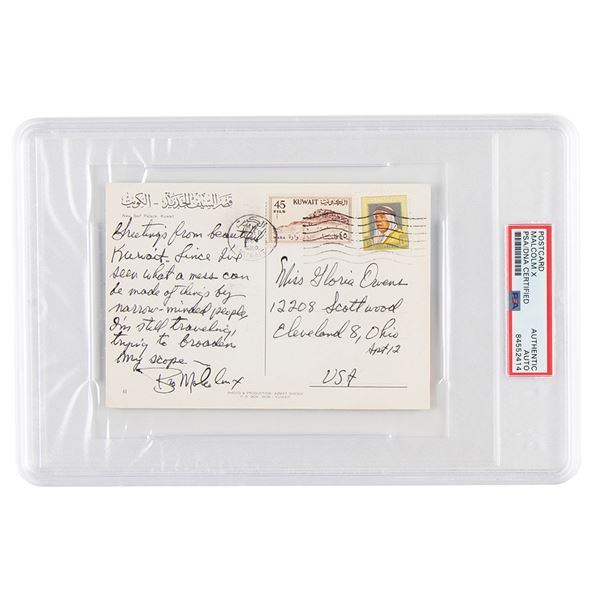 قصر السيف الجديد - الكويت
New Seif Palace, Kuwait
45 FILS
KUWAIT
الكويت
Greetings from beautiful
Kuwait. Since I've
seen what a mess can
be made of things by
narrow-minded people,
I'm still traveling,
trying to broaden
my scope —
Bro Malcolm X
Miss Gloria Owens
12208 Scottwood
Cleveland 8, Ohio
Apt 12
USA
41
PHOTO & PRODUCTION: AZMAT SHEIKH
P.O. BOX KUWAIT
POSTCARD
MALCOLM X
PSA/DNA CERTIFIED
PSA
AUTHENTIC
AUTO
84552414